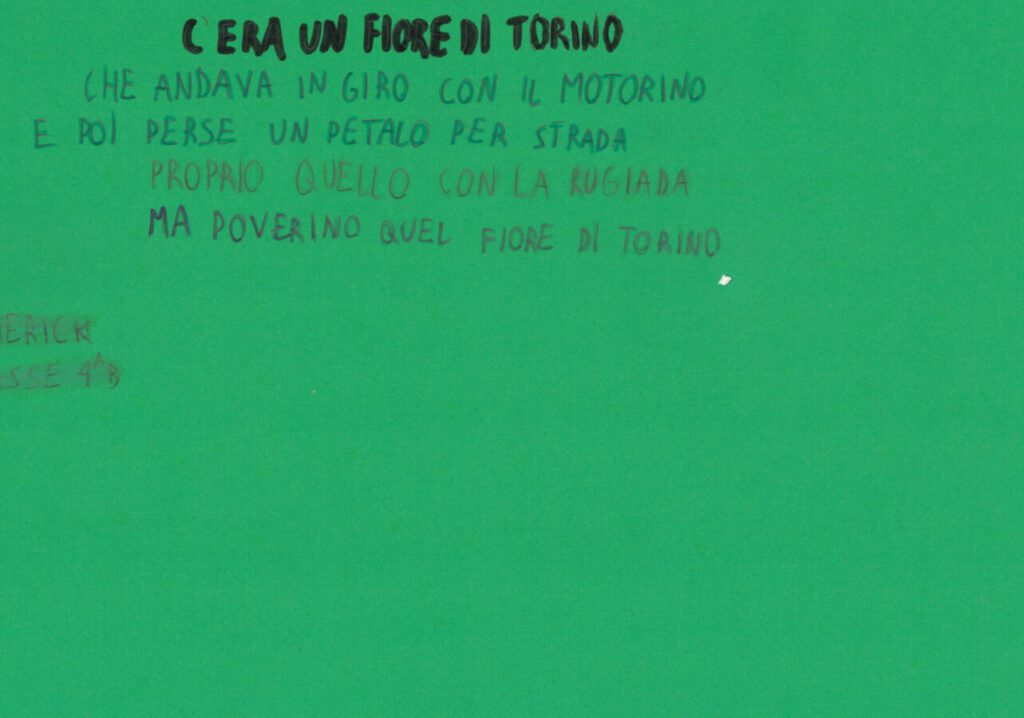 C'ERA UN FIORE DI TORINO
CHE ANDAVA IN GIRO CON IL MOTORINO
E POI PERSE UN PETALO PER STRADA
PROPRIO QUELLO CON LA RUGIADA
MA POVERINO QUEL FIORE DI TORINO
MERICK
ASSE 4ᴬB